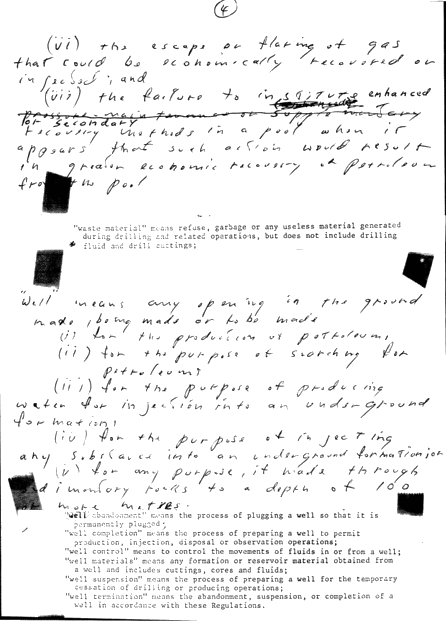 4
(vi) the escape or flaring of gas
that could be economically recovered or
injected; and
(vii) the failure to institute enhanced
for secondary
recovery methods in a pool when it
appears that such action would result
in greater economic recovery of petroleum
from the pool
"waste material" means refuse, garbage or any useless material generated
during drilling and related operations, but does not include drilling
fluid and drill cuttings;
"Well" means any opening in the ground
made, being made or to be made
(i) for the production of petroleum;
(ii) for the purpose of searching for
petroleum;
(iii) for the purpose of producing
water for injection into an underground
formation;
(iv) for the purpose of injecting
any substance into an underground formation; or
(v) for any purpose, if made through
sedimentary rocks to a depth of 100
or more metres.
"Well abandonment" means the process of plugging a well so that it is
permanently plugged;
"well completion" means the process of preparing a well to permit
production, injection, disposal or observation operations;
"well control" means to control the movements of fluids in or from a well;
"well materials" means any formation or reservoir material obtained from
a well and includes cuttings, cores and fluids;
"well suspension" means the process of preparing a well for the temporary
cessation of drilling or producing operations;
"well termination" means the abandonment, suspension, or completion of a
well in accordance with these Regulations.